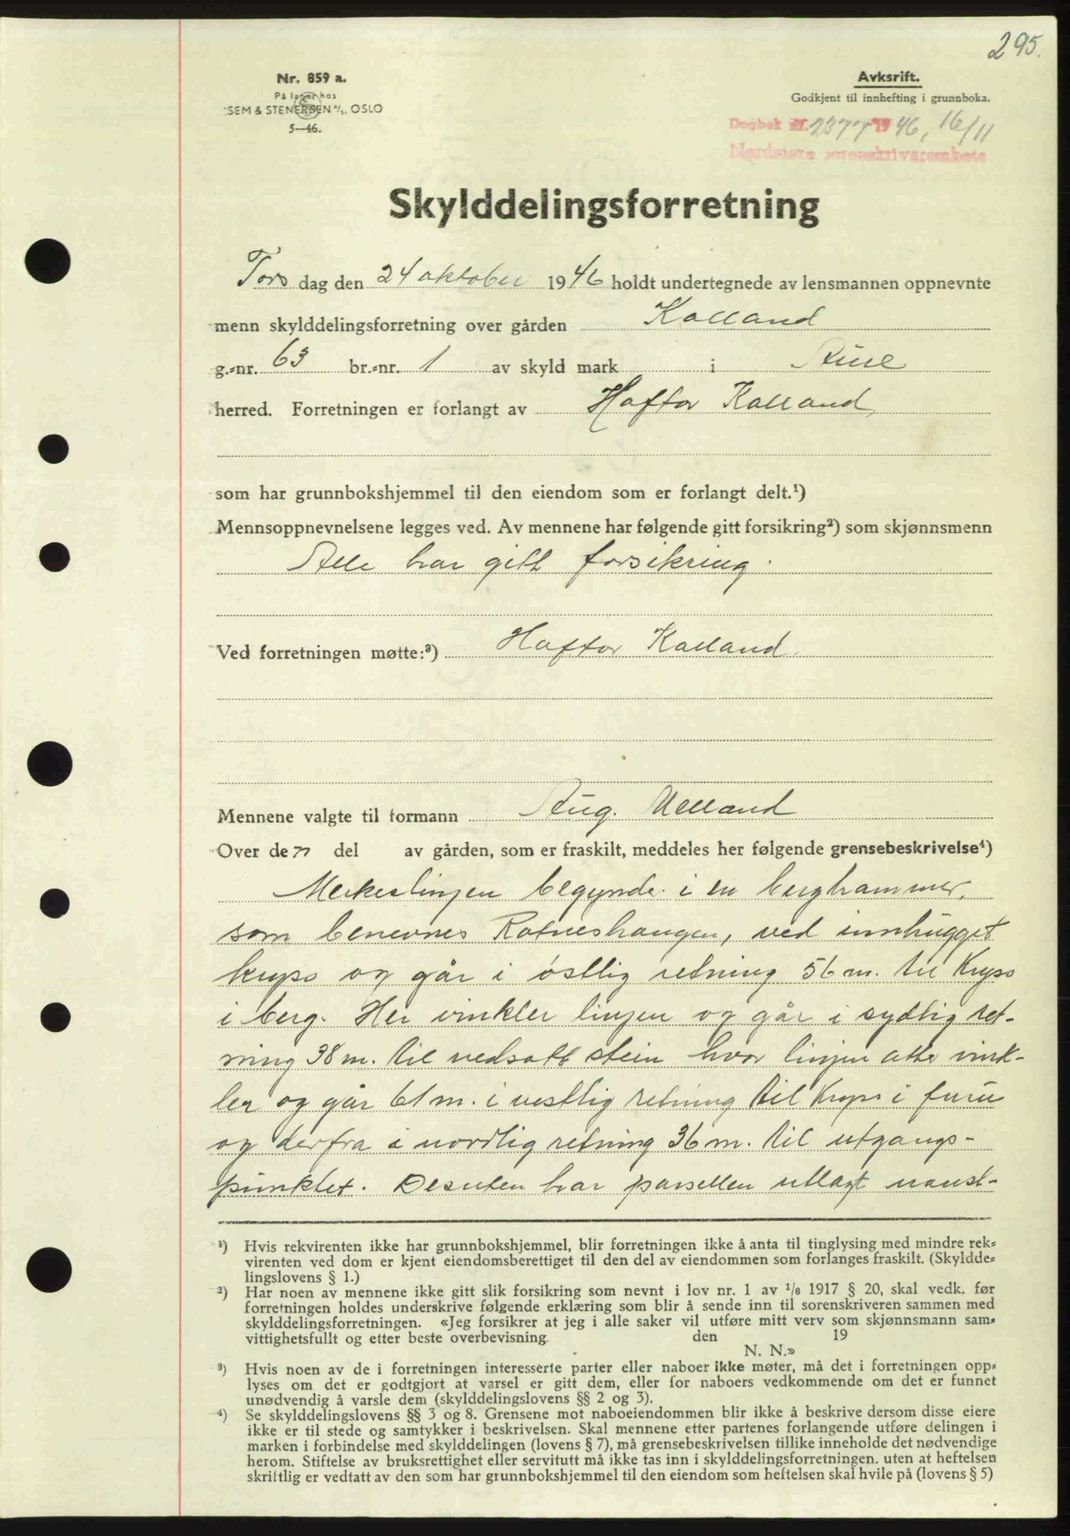 295.
Nr. 859 a.
På lager hos
SEM & STENERSEN A/S, OSLO
5—46.
Avskrift.
Godkjent til innhefting i grunnboka.
Dagbok nr. 2377 1946, 16/11
Nordmøre sorenskriverembete
Skylddelingsforretning
Tors dag den 24 oktober 1946 holdt undertegnede av lensmannen oppnevnte
menn skylddelingsforretning over gården Kalland
g.-nr. 63 br.-nr. 1 av skyld mark i Aure
herred. Forretningen er forlangt av Haftor Kalland,
som har grunnbokshjemmel til den eiendom som er forlangt delt.¹)
Mennsoppnevnelsene legges ved. Av mennene har følgende gitt forsikring²) som skjønnsmenn
Alle har gitt forsikring.
Ved forretningen møtte:³) Haftor Kalland.
Mennene valgte til formann Aug. Melland
Over den del av gården, som er fraskilt, meddeles her følgende grensebeskrivelse⁴)
Merkeslinjen begynder i en berghammer,
som benevnes Rotneshaugen, ved innhugget
kryss og går i østlig retning 56 m. til kryss
i berg. Her vinkler linjen og går i sydlig ret-
ning 38 m. til nedsatt stein hvor linjen atter vink-
ler og går 61 m. i vestlig retning til kryss i furu
og derfra i nordlig retning 36 m. til utgangs-
punktet. Desuten har parsellen utlagt naust-
¹) Hvis rekvirenten ikke har grunnbokshjemmel, blir forretningen ikke å anta til tinglysing med mindre rek-
virenten ved dom er kjent eiendomsberettiget til den del av eiendommen som forlanges fraskilt. (Skyldde-
lingslovens § 1.)
²) Har noen av mennene ikke gitt slik forsikring som nevnt i lov nr. 1 av 1/6 1917 § 20, skal vedk. før
forretningen holdes underskrive følgende erklæring som blir å sende inn til sorenskriveren sammen med
skylddelingsforretningen. «Jeg forsikrer at jeg i alle saker vil utføre mitt verv som skjønnsmann sam-
vittighetsfullt og etter beste overbevisning. den 19
N. N.»
³) Hvis noen av de i forretningen interesserte parter eller naboer ikke møter, må det i forretningen opp-
lyses om det er godtgjort at varsel er gitt dem, eller for naboers vedkommende om det er funnet
unødvendig å varsle dem (skylddelingslovens §§ 2 og 3).
⁴) Se skylddelingslovens §§ 3 og 8. Grensene mot naboeiendommen blir ikke å beskrive dersom disse eiere
ikke er til stede og samtykker i beskrivelsen. Skal mennene etter partenes forlangende utføre delingen i
marken i forbindelse med skylddelingen (lovens § 7), må grensebeskrivelsen tillike inneholde det nødvendige
herom. Stiftelse av bruksrettighet eller servitutt må ikke tas inn i skylddelingsforretningen. uten at heftelsen
skriftlig er vedtatt av den som har grunnbokshjemmel til den eiendom som heftelsen skal hvile på (lovens § 5)